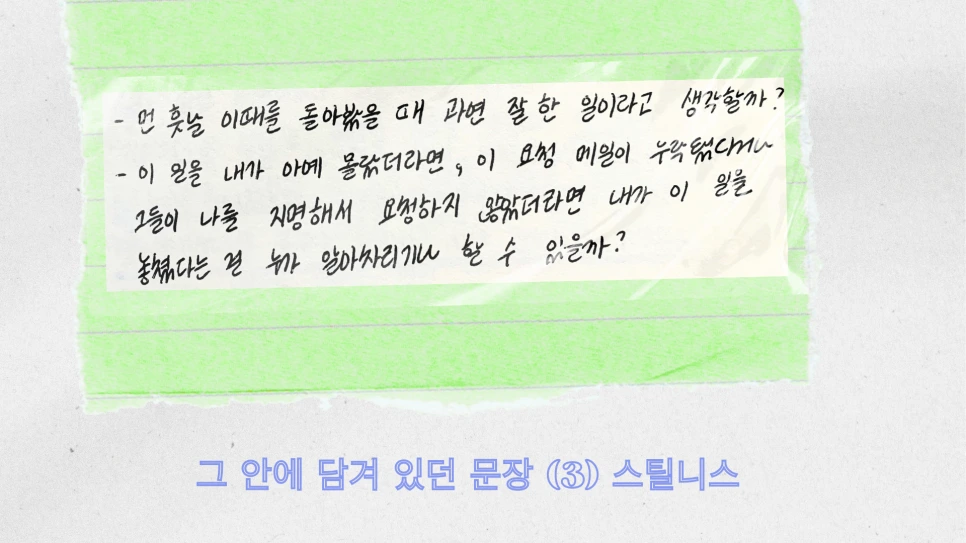 - 먼 훗날 이때를 돌아봤을 때 과연 잘 한 일이라고 생각할까?
- 이 일을 내가 아예 몰랐더라면, 이 요청 메일이 누락됐다거나
그들이 나를 지명해서 요청하지 않았더라면 내가 이 일을
놓쳤다는 걸 누가 알아차리기나 할 수 있을까?
그 안에 담겨 있던 문장 (3) 스틸니스